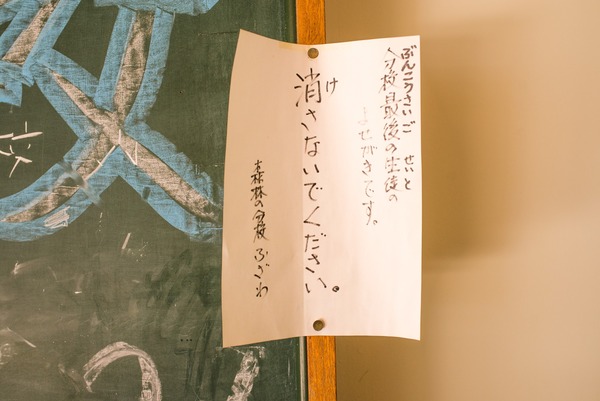 ぶんこうさいご せいと
分校最後の生徒の
よせがきです。
け
消さないでください。
森林の分校 ふざわ